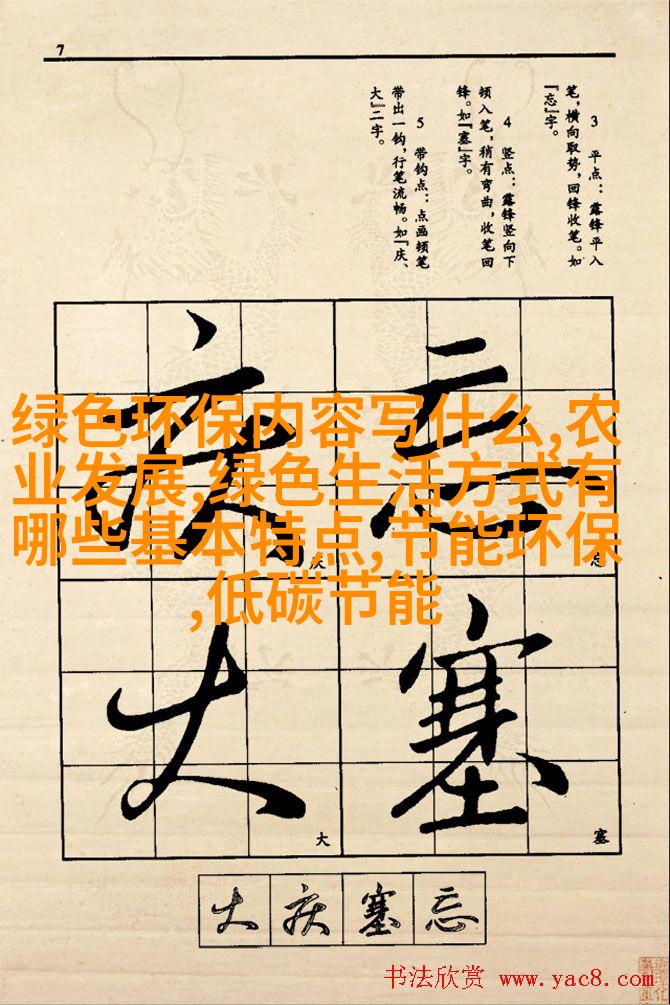 7
3 平点：露锋平入
笔，横向取势，回锋收笔。如
『忘』字。
4 竖点：露锋竖向下
顿入笔，稍有弯曲，收笔回
锋。如『塞』字。
5 带钩点：点画顿笔
带出一钩，行笔流畅。如『庆、
大』二字。
绿色环保内容写什么,农
业发展,绿色生活方式有
哪些基本特点,节能环保
,低碳节能
忘
忘
塞
塞
庆
庆
大
大
大庆塞忘
书法欣赏 www.yac8.com